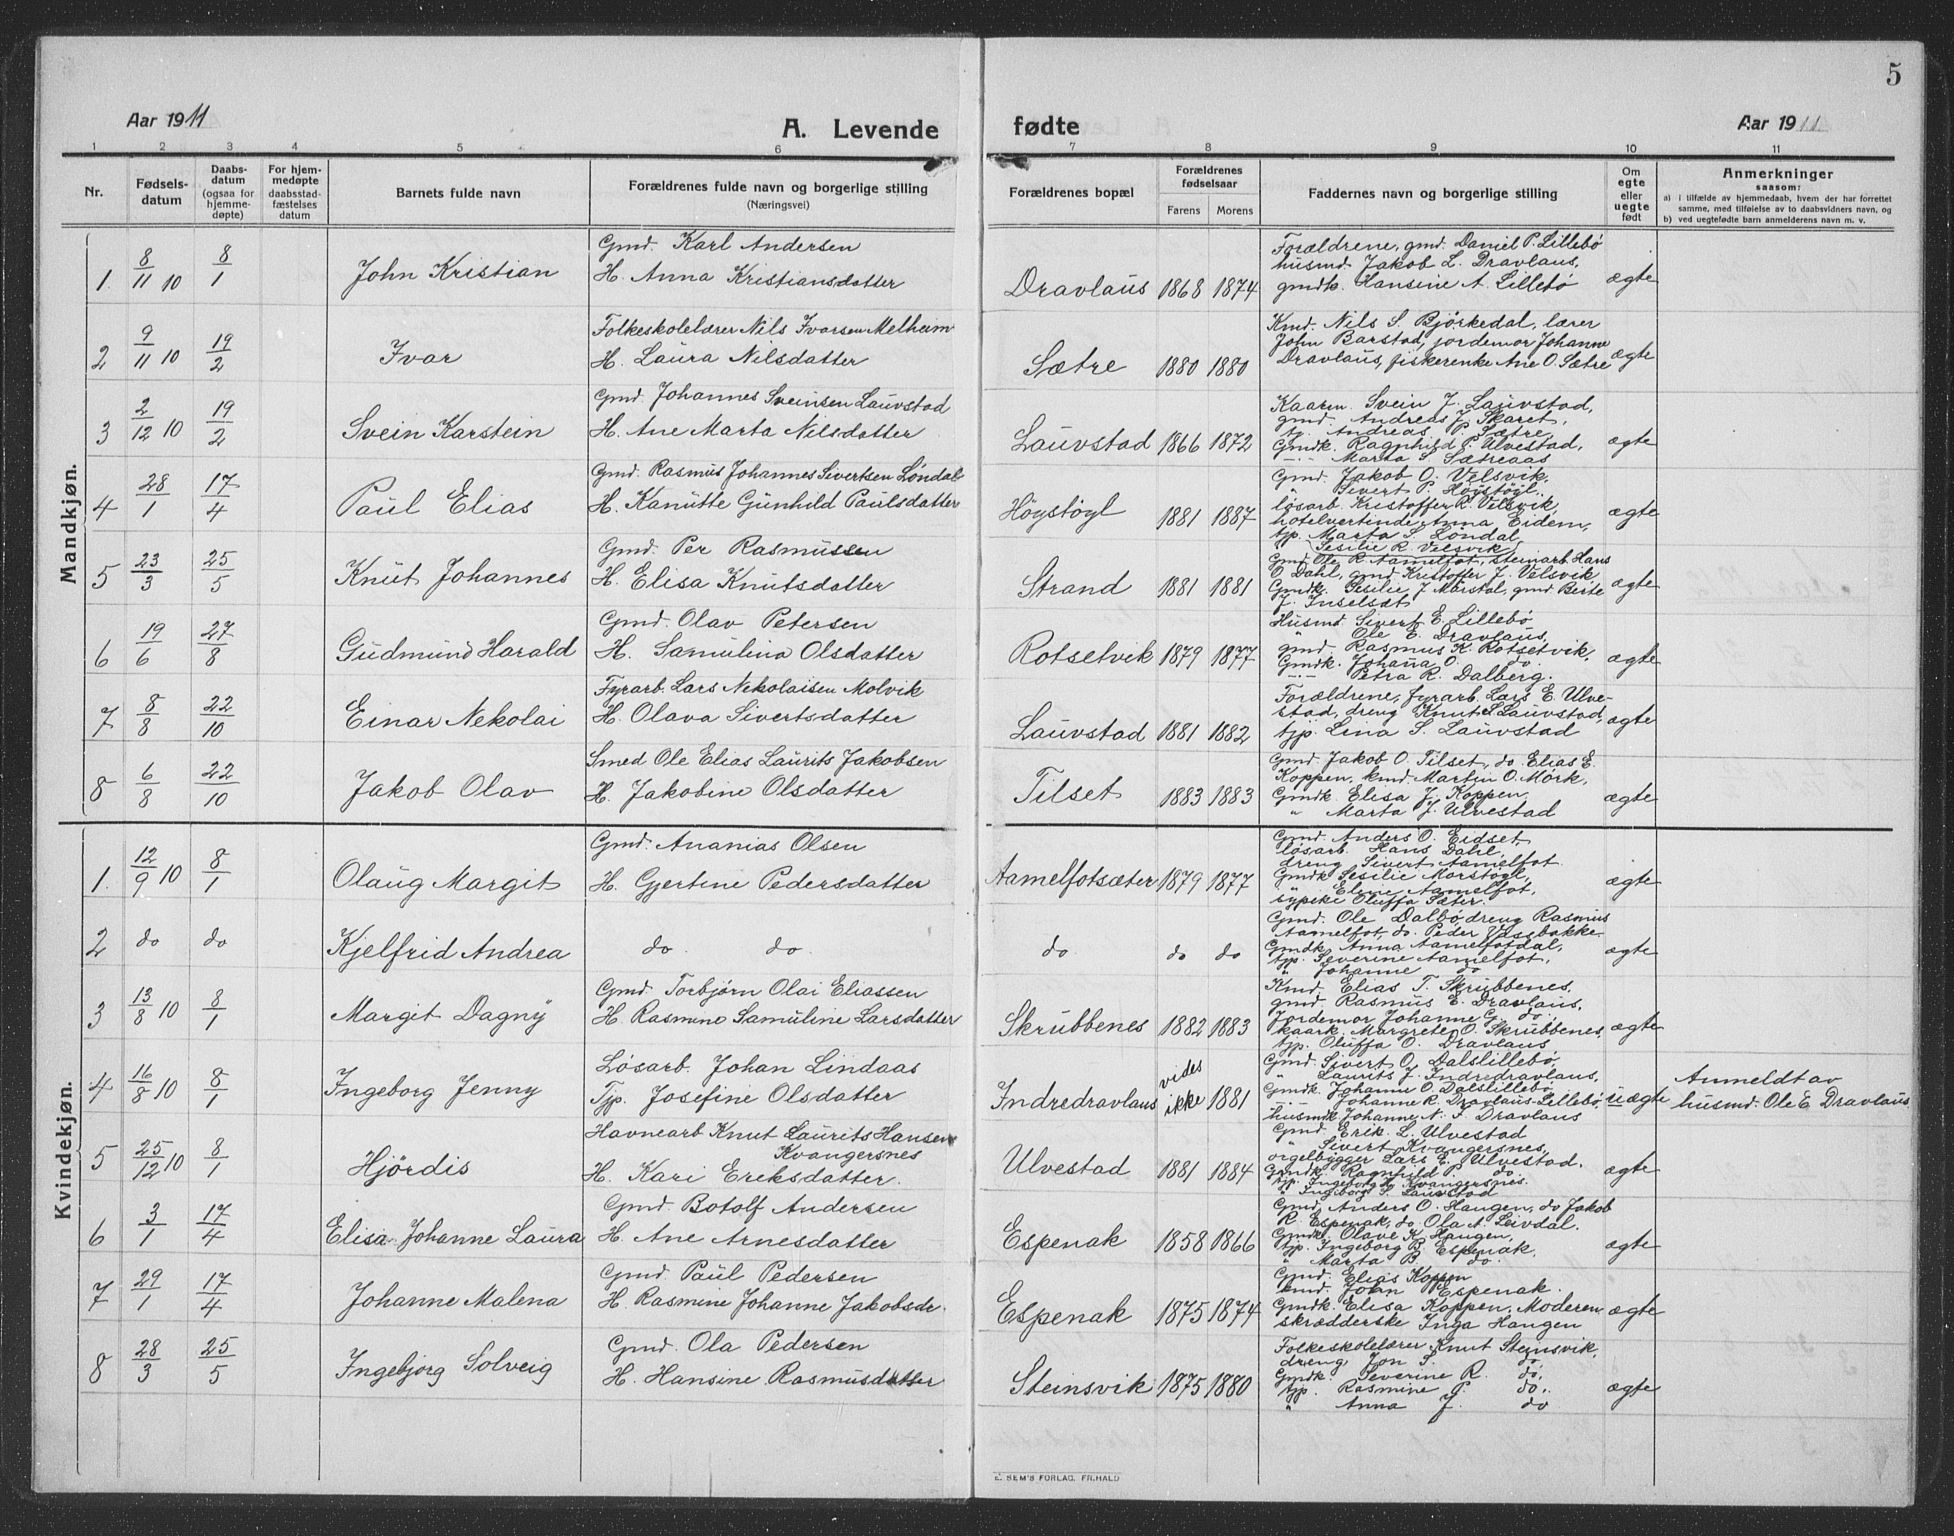 5
Aar 1911
A. Levende fødte
Aar 1911
1 2 3 4 5 6 7 8 9 10 11
Nr.
Fødsels-
datum
Daabs-
datum
(ogsaa for
hjemme-
døpte)
For hjem-
medøpte
daabsstad-
fæstelses
datum
Barnets fulde navn
Forældrenes fulde navn og borgerlige stilling
(Næringsvei)
Forældrenes bopæl
Forældrenes
fødselsaar
Farens Morens
Faddernes navn og borgerlige stilling
Om
egte
eller
uegte
født
Anmerkninger
saasom:
a) i tilfælde av hjemmedaab, hvem der har forrettet
samme, med tilføielse av to daabsvidners navn, og
b) ved uegtefødte barn anmelderens navn m. v.
Mandkjøn.
1. 8/11 10 8/1 John Kristian
Gmd. Karl Andersen
H. Anna Kristiansdatter
Dravlaus 1868 1874
Forældrene, gmd. Daniel P. Lillebö
husmd. Jakob L. Dravlaus,
gmdk. Hansine A. Lillebö
ægte
2 9/11 10 19/2 Ivar
Folkeskolelærer Nils Ivarsen Melheim
H. Laura Nilsdatter
Sætre 1880 1880
Kmd. Nils S. Björkedal, lærer
John Barstad, jordemor Johanne
Dravlaus, fiskerenke Ane O. Sætre
ægte
3 2/12 10 19/2 Svein Karstein
Gmd. Johannes Sveinsen Lauvstad
H. Ane Marta Nilsdatter
Lauvstad 1866 1872
Kaarm. Svein J. Lauvstad,
gmd. Andreas J. Skaret,
Andreas P. Sætre,
Gmdk. Ragnhild P. Ulvestad,
Marta S. Sætreaas
ægte
4 28/1 17/4 Paul Elias
Gmd. Rasmus Johannes Sivertsen Löndal
H. Kanutte Gunhild Paulsdatter
Högstögl 1881 1887
Gmd. Jakob O. Velsvik,
" Sivert P. Högstögl,
løsarb. Kristoffer R. Velsvik,
hotelvertinde Anna Eidem,
tjp. Marta S. Löndal,
" Sesilie R. Velsvik
ægte
5 23/3 25/5 Knut Johannes
Gmd. Per Rasmussen
H. Elisa Knutsdatter
Strand 1881 1881
Gmd Ole R. Aamelfot, steinarb. Hans
O. Dahl, gmd. Kristoffer J. Velsvik,
Gmdk. Sesilie J. Marstal, gmd. Berte
J. Inselset
ægte
6 19/6 27/8 Gudmund Harald
Gmd. Olav Petersen
H. Samulina Olsdatter
Rotsetvik 1879 1877
Husmd. Sivert E. Lillebö
" Ole E. Dravlaus,
gmd. Rasmus K. Rotsetvik,
Gmdk. Johana O. do.
Petra R. Dalberg.
ægte
7 8/8 22/10 Einar Nekolai
Fyrarb. Lars Nekolaisen Molvik
H. Olava Sivertsdatter
Lauvstad 1881 1882
Forældrene, fyrarb. Lars E. Ulve-
stad, dreng Knut S. Lauvstad,
tjp. Lina S. Lauvstad
ægte
8 6/8 22/10 Jakob Olav
Smed Ole Elias Laurits Jakobsen
H. Jakobine Olsdatter
Tilset 1883 1883
Gmd. Jakob O. Tilset, do. Elias E.
Koppen, kmd. Martin O. Mork,
Gmdk. Elisa J. Koppen,
" Marta J. Ulvestad
ægte
Kvindekjøn.
1. 12/9 10 8/1 Olaug Margit
Gmd. Ananias Olsen
H. Gjertine Pedersdatter
Aamelfotsæter 1879 1877
Gmd. Anders O. Eidset,
løsarb. Hans Dahl,
dreng Sivert Aamelfot.
Gmdk Sesilie Morstøgl,
Eline Aamelfot,
sypike Oluffa Sæter.
ægte
2 do do Kjelfrid Andrea
do do.
do do do
Gmd. Ole Dalbö, dreng Rasmus
Aamelfot, do. Peder Vassbakke
Gmdk. Anna Aamelfotdal,
tjp. Severine Aamelfot,
" Johanne do
ægte
3 13/8 10 8/1 Margit Dagny
Gmd. Torbjørn Olai Eliassen
H. Rasmine Samuline Larsdatter
Skrubbenes 1882 1883
Kmd. Elias T. Skrubbenes,
gmd. Rasmus E. Dravlaus,
Jordemor Johanne G. do.
kaark. Margrete O. Skrubbenes,
tjp. Oluffa O. Dravlaus
ægte
4 16/8 10 8/1 Ingeborg Jenny
Løsarb. Johan Lindaas
Tjp. Josefine Olsdatter
Indredravlaus vides ikke 1881
Gmd. Sivert O. Dalslillebö,
" Laurits J. Indredravlaus,
Gmdk. Johanne O. Dalslillebö
Johanne R. Dravlaus-Lillebö,
husmdk. Johanne N. I. Dravlaus
uægte
Anmeldt av
husmd. Ole E. Dravlaus
5 25/12 10 8/1 Hjördis
Havnearb Knut Laurits Hansen
Kvangersnes
H. Kari Eriksdatter.
Ulvestad 1881 1884
Gmd. Erik L. Ulvestad
" Sivert Kvangersnes,
orgelbygger Lars E. Ulvestad.
Gmdk. Ragnhild P. do.
tjp. Ingeborg H. Kvangersnes.
" Ingeborg S. Lauvstad
ægte
6 3/1 17/4 Elisa Johanne Laura
Gmd. Botolf Andersen
H. Ane Arnesdatter
Espenak 1858 1866
Gmd. Anders O. Haugen, do Jakob
R. Espenak, do. Ola A. Leivdal.
Gmdk. Olave K. Haugen,
tjp. Ingeborg B. Espenak.
" Marta B. do.
ægte
7 29/1 17/4 Johanne Malena
Gmd. Paul Pedersen
H. Rasmine Johanne Jakobsdr.
Espenak 1875 1874
Gmd. Elias Koppen
kmd. John Espenak.
Gmdk. Elisa Koppen, Moderen,
skrædderske Inga Haugen
ægte
8 28/3 25/5 Ingebjorg Solveig
Gmd. Ola Pedersen
H. Hansine Rasmusdatter
Steinsvik 1875 1880
Folkeskolelærer Knut Steinsvik,
dreng Jon S. do,
Gmdk. Severine R. do,
tjp. Rasmine P. do.
" Anna J. do
ægte
E. SEM'S FORLAG, FR.HALD